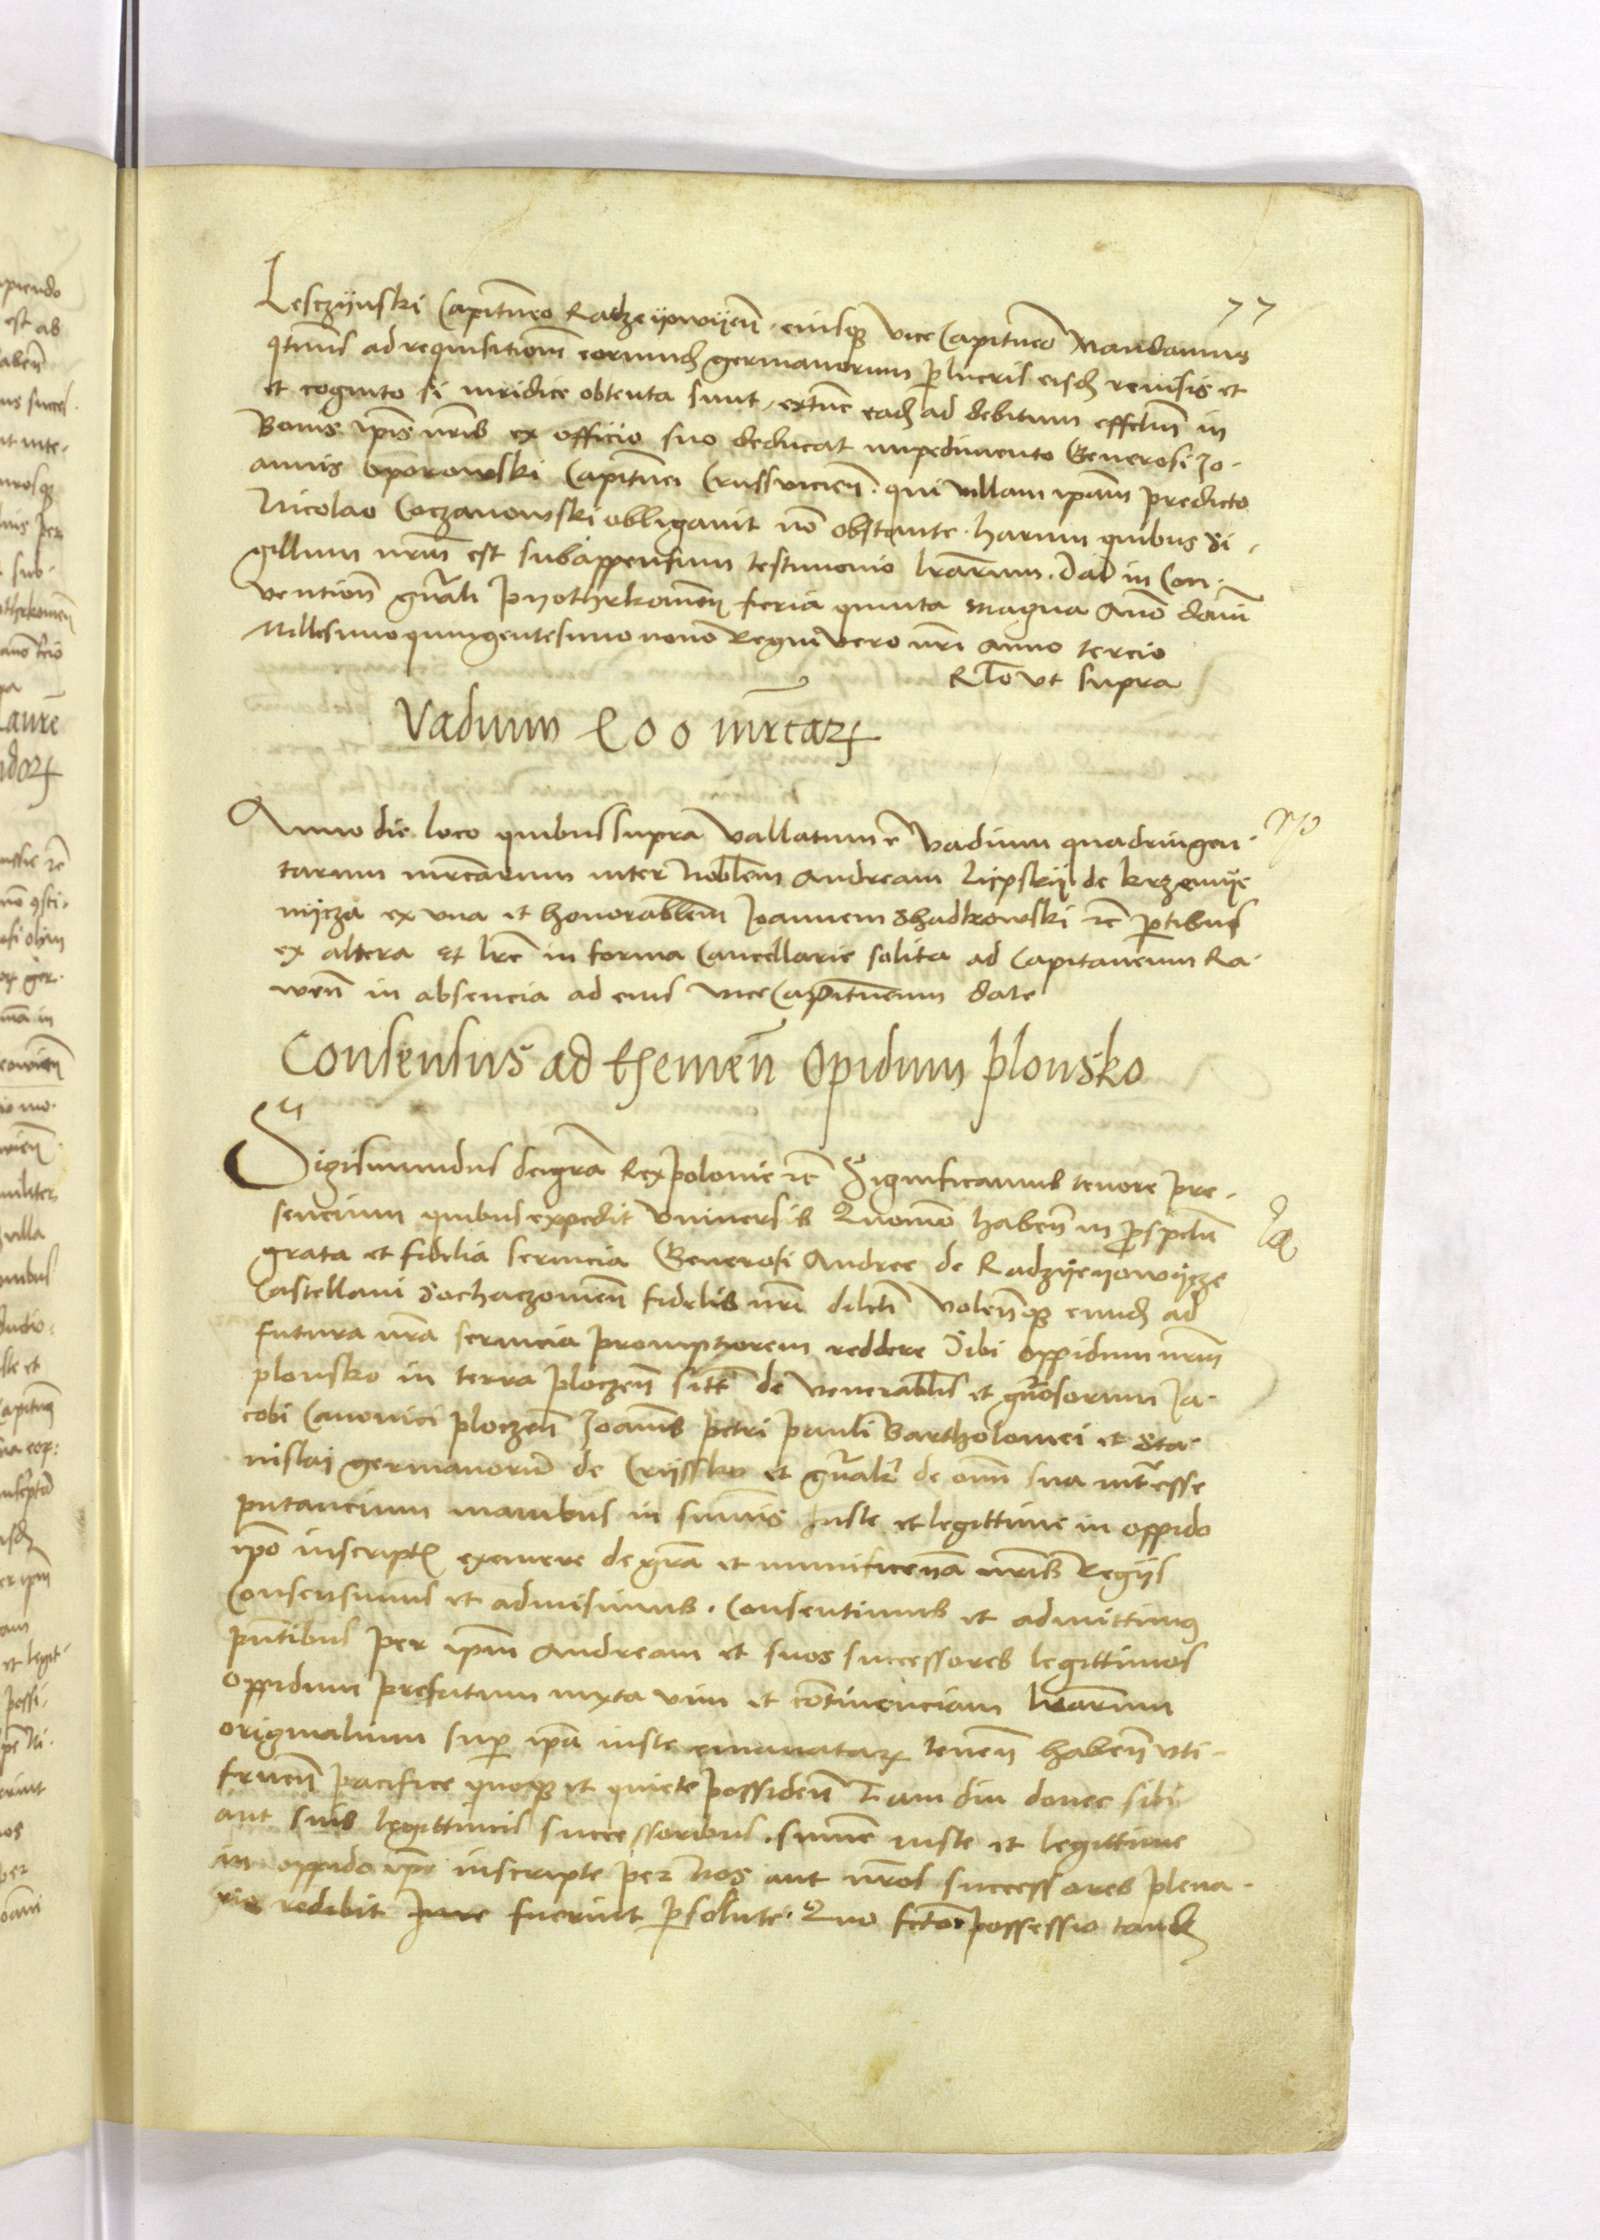 77
Lesczijnski Capitaneo Radzeijowijen. eiusque vice Capitaneo Mandamus
qtenus ad requisitionem eorundem germanorum per lucris eisdem revisis et
et cognito si iuridice obtenta sunt, extunc eadem ad debitum effectum in
Bonis ipsis nris ex officio suo deducat impedimento Generosi Jo-
annis Oporowski Capitanei Crusvicien. qui villam ipam predicto
Nicolao Coczanowski obligavit non obstante. harum quibus Si-
gillum nrum est subappensum testimonio lrarum. Dat in Con-
ventione gnrali Pyothrkowien feria quinta magna Anno domini
Millesimo quingentesimo nono Regni vero nri anno tercio
Rlo vt supra
Vadium 400 mrcarum
Anno die loco quibus supra vallatum e vadium quadringen-
tarum mrcarum inter Noblem Andream Licpskij de krzemije
nijcza ex vna et honorablem Joannem Shadkowski etc partibus
ex altera Et lre in forma Cancellarie solita ad Capitaneum Ra-
wen in absencia ad eius vice Capitneum date
Consensus ad themen Opidum plonsko
Sigismundus dei gra Rex polonie etc Significamus tenore pre-
sencium quibus expedit vniversis Quomodo haben in prospectu
grata et fidelia servicia Generosi Andree de Radzijeyowijcze
Castellani Sochaczowien fidelis nri dilecti volenque eundem ad
futura nra servicia promptiorem reddere Sibi oppidum nrum
plonsko in terra ploczen sitt de venerablis et gnrosorum Ja-
cobi Canonici ploczen Joannis petri pauli Bartholomei et Sta-
nislai germanorum de Crijssko et gnraliter de omni sua intresse
putancium manibus in summis iuste et legittime in oppido
ipo inscriptis eximere de gra et munificencia nris Regijs
Consensimus et admisimus. Consentimus et admittimus
pntibus per ipm Andream et suos successores legittimos
Oppidum prefatum iuxta vim et continenciam lrarum
originalium super ipa iuste emanatarum tenen haben vti-
fruen pacifice quoque et quiete possiden Tam diu donec sibi
aut suis legittimis successoribus. summe iuste et legittime
in oppido ipo inscripte per Nos aut nros successores plena-
rie redibit fuerint persolute. Quo facto possessio tandem